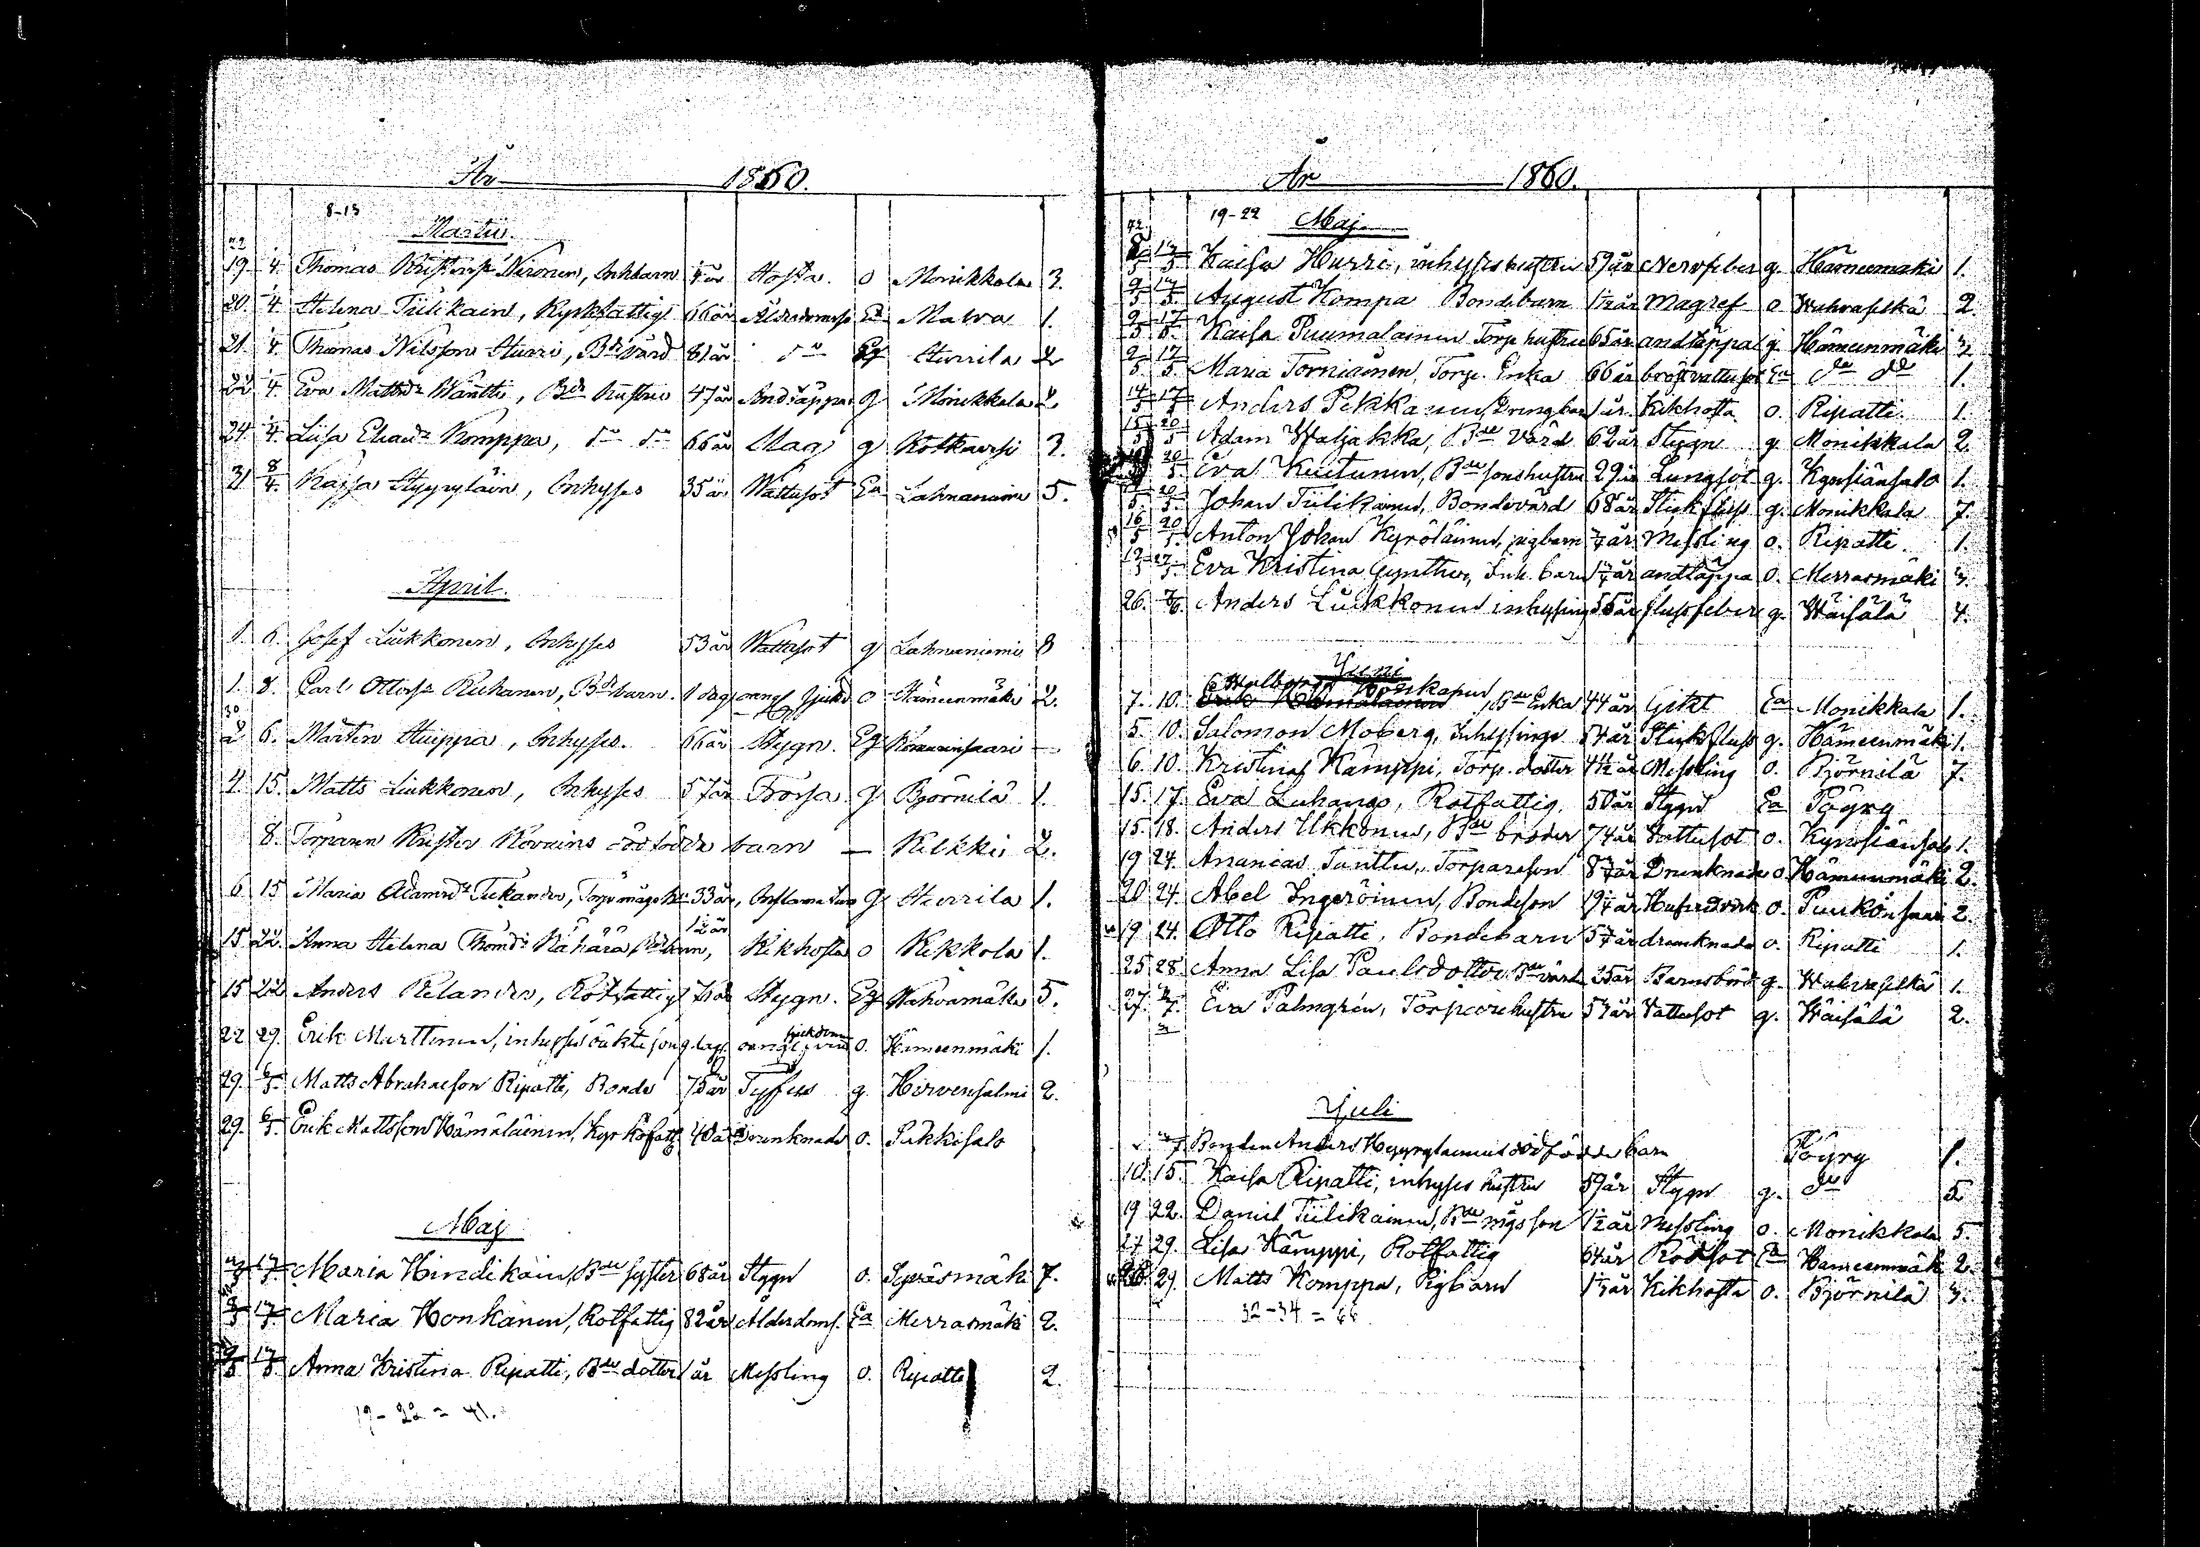 År 1860.
8-13
Martii
22
19 1/4. Thomas Nironen, Inhbarn 4 år Hosta. o Monikkala 3.
20. 1/4. Helena Tiilikain, Kyrkfattigt 66 år Ålderdomssv Ea Mawa 1.
21. 1/4. Thomas Nilsson Hurri, Bde värd 81 år do Eg Hurrila 2
22 1/4. Eva Mattsdr Wäntti, Bde hustru 47 år Andtäppa g Monikkala 2.
24. 1/4. Lisa Komppa, do do 66 år Mag g Kotkavesi 3.
21 8/4. Kajsa Hyyryläin, Inhyses 35 år Wattusot Ea Lahnaniemi 5.
April.
1. 6. Josef Liukkonen, Inhyses 53 år Wattusot g Lahnaniemi 8
1. 8. Carl Ottoss Ruhanen, Bde barn. 1 dag o Hämeenmäki 2.
30
2 6. Mårten Huippa, Inhyses. 66 år Stygn. Eg —
4. 15. Matts Liukkonen, Inhyses 57 år Frossa g Björnilä 1.
8. Torparen Krister Kovains dödfödde barn — Kekki 2.
6. 15 Maria Adamsdr Tukander, 33 år, g Hurrila 1.
15 22. Anna Helena Thomdr Kähärä 1 1/2 år Kikhosta o Kekkola 1.
15 22 Anders Relander, Rotfattigt 71 år Stygn. Eg Wahvamäki 5.
22 29. Erik Marttinen, inhyses oäkta son 9 dag. sjukdom o. Hämeenmäki 1.
29. 6/5. Matts Abrahamson Ripatti, Bonde 75 år Tyffus g. Hirvensalmi 2.
29. 6/5. Erik Mattsson Hämäläinen, 40 år Drunknade o. Pukkisalo
Maj
17/5. Maria Hindikain, Bde syster 68 år Stygn o. Syväsmäki 7.
17/5 Maria Honkanen, Rotfattig 82 år Ålderdoms. Ea Merrasmäki 2.
17/5. Anna Kristina Ripatti, Bde dotter 1 år Messling o. Ripatti 2.
19-22 = 41.
År 1860.
19-22 Maj
17/5 Kaisa Hurri, inhyses hustru 59 år Nervfeber g. Hämeenmäki 1.
9/5 17/5. August Kompa Bondebarn 1 1/2 år Magref o Wahvaselkä 2.
9/5 17/5. Kaisa Puumalainen Torp hustru 65 år andtäppa g Hämeenmäki
9/5 17/5. Maria Torniainen, Torp. Enka 66 år bröstvattusot Ea do do 1.
14/5 17/5 Anders Pekkanen, Dreng barn 1 år. Kikhosta o. Ripatti. 1.
15/5 20/5 Adam Waljakka, Bde värd 62 år Stygn g Monikkala 2.
20/5 Eva Kuitunen, Bde sonshustru 29 år Lungsot g. Kynsiänsalo 1.
20/5. Johan Tiilikainen, Bondevärd 68 år Stickfluss g. Monikkala 7.
16/5 20/5. Anton Johan Kyröläinen, pigbarn 3/4 år Messling o. Ripatti. 1.
27/5. Eva Kristina Gynther, Inh. barn år andtäppa o. Merrasmäki 3.
26. 3/6. Anders Liukkonen inhysing 55 år flussfeber g. Wäisälä 4.
Juni
7. 10. Bde Enka 44 år Gikt Ea Monikkala 1.
5. 10. Salomon Moberg, Inhysinge 54 år Stickfluss g. Hämeenmäki 1.
6. 10. Kristina Kämppi, Torp. dotter 4 1/2 år Messling o. Björnilä 7.
15. 17. Eva Luhango, Rotfattig 50 år Stygn Ea Pöyry
15. 18. Anders Ukkonen, Bde broder 74 år Vattusot o. Kynsiänsalo 1.
19 24. Ananias Tanttu, Torpareson år Drunknade o. Hämeenmäki 2.
20 24. Abel Ingeröinen, Bondeson 19 1/4 år Hufvudverk o. 2.
19 24. Otto Ripatti, Bondebarn år drunknade o. Ripatti 1.
25 28. Anna Lisa Paulsdotter, Bde värd 25 år Barnsbörd g. Wahvaselkä 1.
27. 1/7. Eva Palmgrén, Torpare hustru 54 år Vattusot g. Wäisälä 2.
Juli
Bonden Anders Hyyryläinens dödfödde barn Pöyry 1.
10. 15. Kaisa Ripatti, inhyses hustru 59 år Stygn g. do 5
19 22. Daniel Tiilikainen, Bde mågs son 1 1/2 år Messling o. Monikkala 5
27 29. Lisa Kämppi, Rotfattig 64 år Rödsot Ea Hämeenmäki 2.
29. Matts Komppa, Pigbarn år Kikhosta o. Björnilä 3.
32-34 = 66